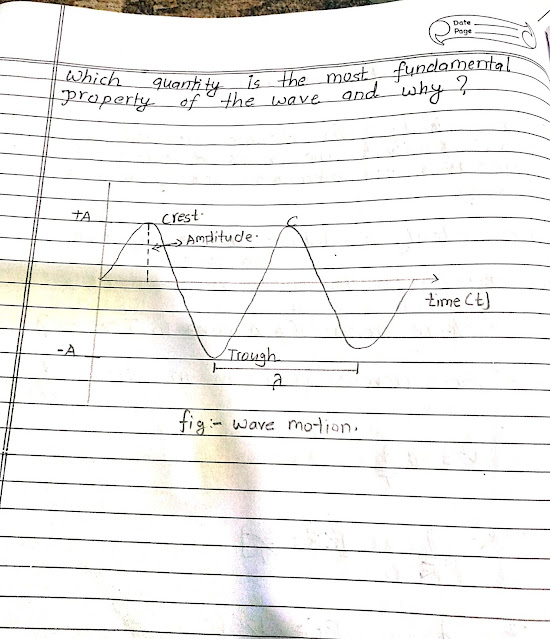 Date
Page
Which quantity is the most fundamental
property of the wave and why ?
+A
Crest.
Amplitude.
C
time (t)
-A
Trough
λ
fig:- wave motion.